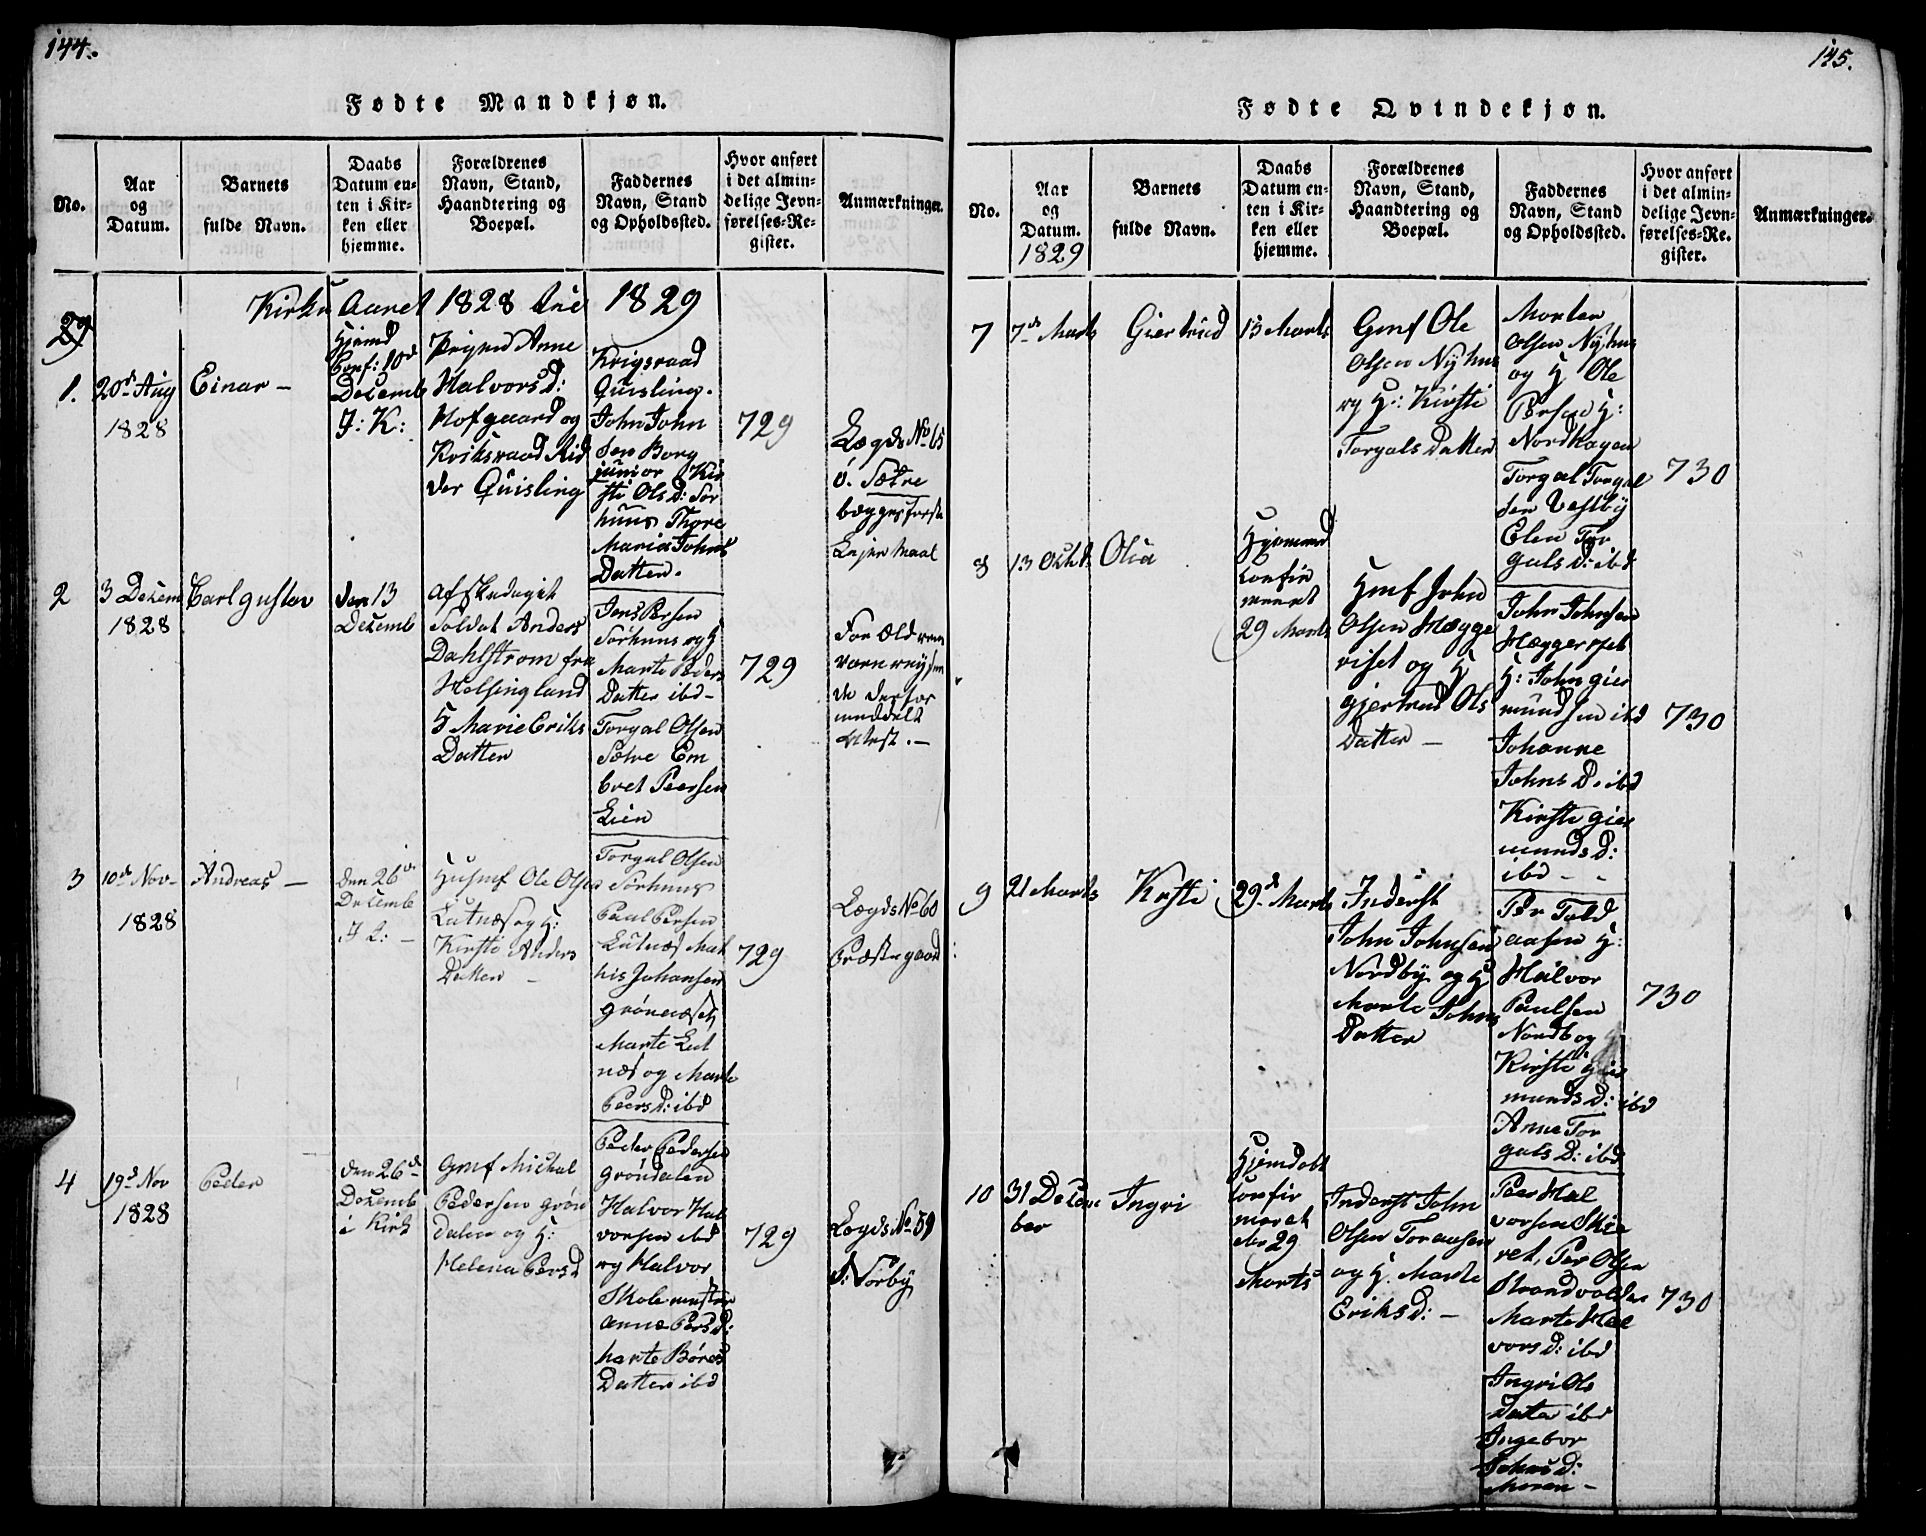 144.
Fødte Mandkjøn.
No.
Aar
og
Datum.
Barnets
fulde Navn.
Daabs
Datum en-
ten i Kir-
ken eller
hjemme.
Forældrenes
Navn, Stand,
Haandtering og
Boepæl.
Faddernes
Navn, Stand
og Opholdssted.
Hvor anført
i det almin-
delige Jevn-
førelses-Re-
gister.
Anmærkninger.
Kirke Aaret 1828 til 1829
29
1.
20d Aug
1828
Einar –
Hjemd
Conf: 10d
Decemb
I: K:
Pigen Anne
Halvorsd:
Hofgaard og
Kriksraad Rid
der Quisling
Krigsraad
Quisling.
John John
sen Borg
junior Kir
sti Olsd: Sør
huus Thore
Maria Johns
Datter.
729
Lægds No 65
ö. Sætre
begges første
Leјermaal
2
3 Decem
1828
Carl gustav
den 13
Decemb
afskediget
Soldat Anders
Dahlstrøm fra
Helsingland
H Marie Eriks
Datter
Jens Persen
Sørhuus og H
Marte Peders
Datter ibd –
Torgal Olsen
Sætre Em
bret Peersen
Lien
729
Forældrene
vare
de derfor
meddelt
Attest. –
3
10d Nov –
1828
Andreas –
den 26d
Decemb
I K: –
Husmf Ole Olsen
Lutnæs og H:
Kirsti Anders
Datter –
Torgal Olsen
Sørhuus
Paul Persen
Lutnæs Mat
his Johansen
grønæset
Marte Lut
næs og Marte
Peersd: ibd
729
Lægds No 60
Præstegaard
4
19d Nov
1828
Peder
den 26d –
Decemb
i Kirk
Gmf Michal
Pedersen grøn
dalen og H:
Helena Persd
Peder Pedersen
grøndalen
Halvor Hal
vorsen ibd
og Halvor
Skolemester
Anne Persd:
Marte Børes
Datter ibd
729
Lægds No 59
S: Sørby
145.
Fødte Qvindekjøn.
No.
Aar
og
Datum.
1829
Barnets
fulde Navn.
Daabs
Datum en-
ten i Kir-
ken eller
hjemme.
Forældrenes
Navn, Stand,
Haandtering og
Boepæl.
Faddernes
Navn, Stand
og Opholdssted.
Hvor anført
i det almin-
delige Jevn-
førelses-Re-
gister.
Anmærkninger.
7
7d Marts
Giertrud
15 Marts
Gmf Ole
Olsen Nyhus
og H: Kirsti
Torgals Datter
Morten
Olsen Nyhus
og H Ole
Persen H:
Nordhagen
Torgal Torgal
sen Vestby
Elen Tor
gals d: ibd
730
8
13
Olia
Hjemmed
confir
meret
29 Marts
Hmf John
Olsen Hægge
riset og H
gjertrud Ols
Datter –
John Johnsen
Hæggeriset
H: John gier
mundsen ibd
Johanne
Johns D. ibd
Kirsti gier
munds d:
ibd – –
730
9
21 Marts
Kirsti
29d Marts
Inderst
John Johnsen
Nordby og H
Marte Johns
Datter
Per Fald
aasen H:
Halvor
Paulsen
Nordb og H
Kirsti gier
munds d: ibd
Anne Tor
gals D: ibd
730
10
31 Decem
ber
Ingri
Hjemdøbt
confir
meret
den 29
Marts
Inderst John
Olsen Toraasen
og H. Marte
Eriks d: –
Peer Hal
vorsen Skie
ret, Per Olsen
Strandvolden
Marte Hal
vors d: ibd
Ingri Ols
Datter ibd
Ingebor
Johns d:
Moren –
730